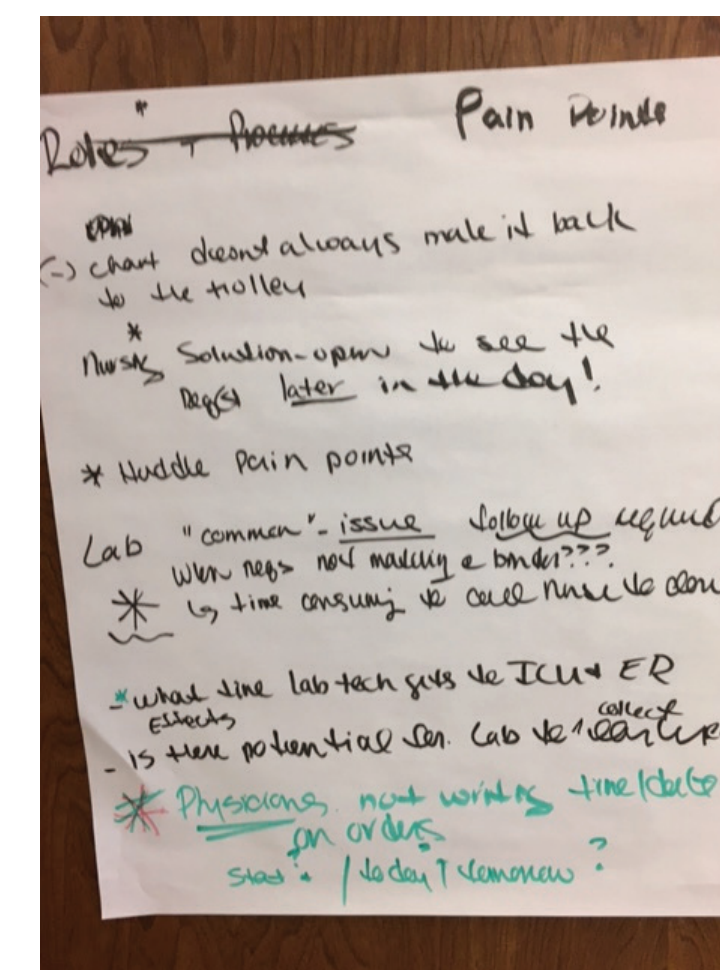 Roles + Processes Pain Points
(-) chart doesnt always make it back
to the trolley
*
Nursing Solution - open to see the
later in the day!
* Huddle Pain points
Lab "common" - issue follow up
when reqs not matching e binder???
* ↳ time consuming to call nurse to
- * what time lab tech gets to ICU + ER
Effects
collect
- is there potential for Lab to earlier
* Physicians not writing time/date
on orders
Stat? / today? tomorrow?